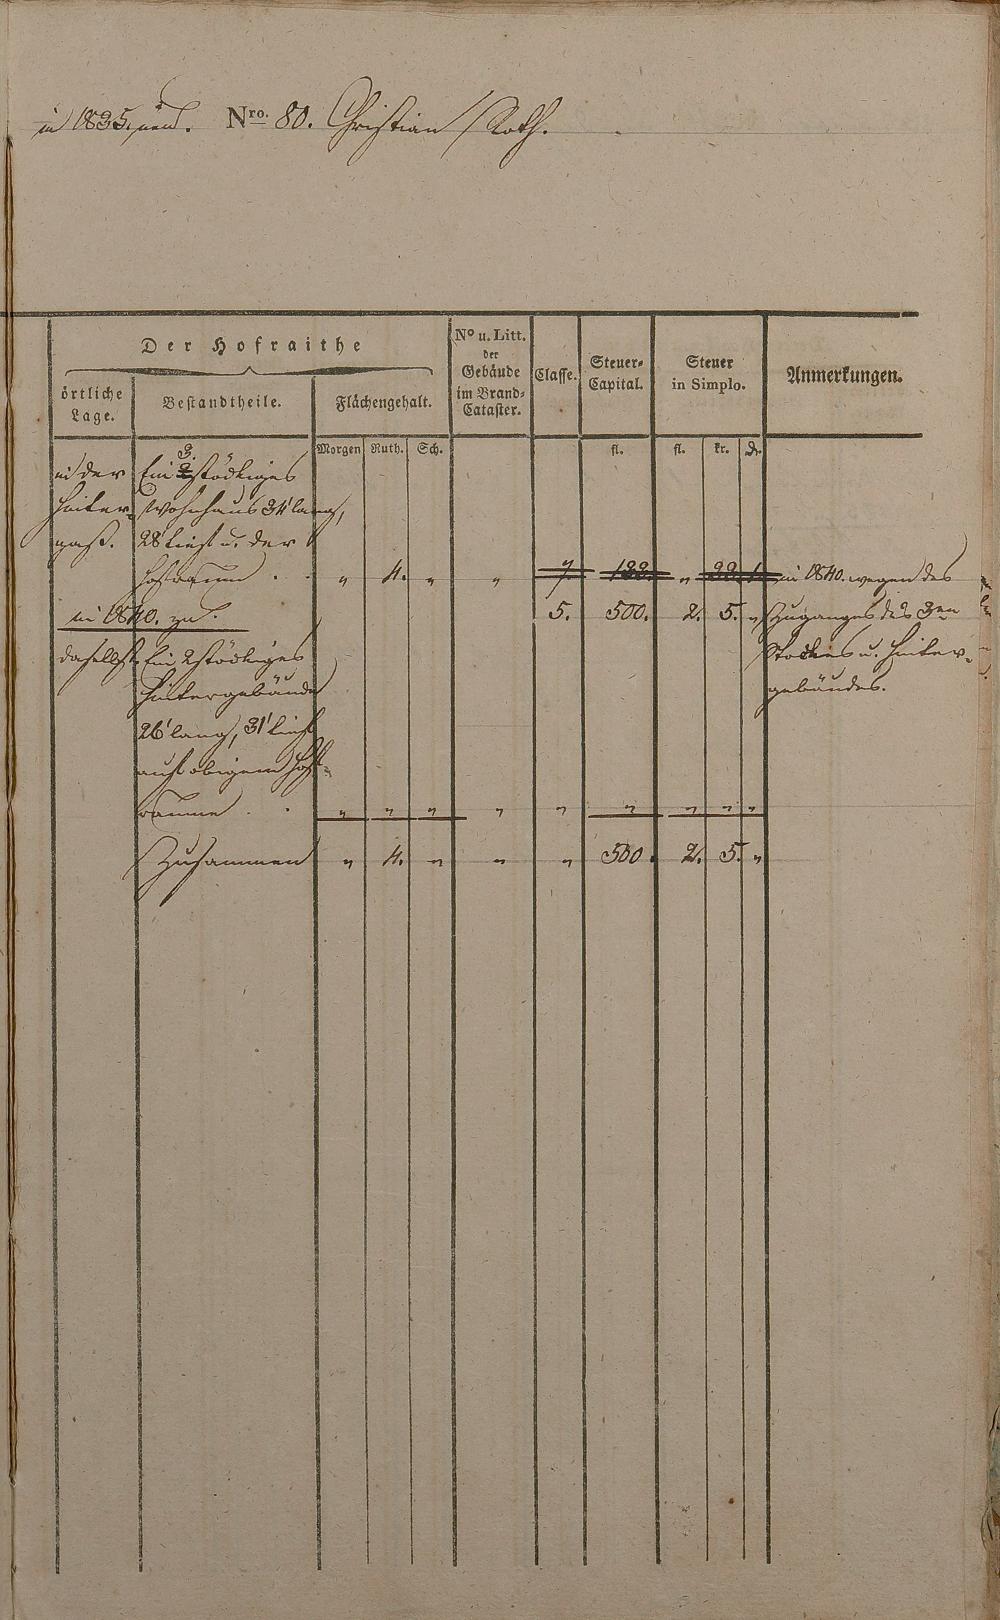 in 1835. neu. Nro. 80. Christian Roth.
Der Hofraithe
örtliche Lage.
Bestandtheile.
Flächengehalt.
Morgen Ruth. Sch.
No u. Litt. der Gebäude im Brand-Cataster.
Classe.
Steuer-Capital.
fl.
Steuer in Simplo.
fl. kr. dr.
Anmerkungen.
in der Ein 3. 2 stöckiges
Hinter- Wohnhaus 34' lang,
gaß. 28' tief u. der
Hofraum . . „ 4. „ „ 7. „ in 1840. wegen des
in 1840. zu. 5. 500. 2. 5. „ Zuganges des 3en
Stockes u. Hinter-
daselbst Ein 2 stöckiges
gebäudes.
Hintergebäude
26' lang, 31' tief
auf obigem Hof-
raume . . „ „ „ „ „ „ „ „ „
Zusammen „ 4. „ „ „ 500. 2. 5. „